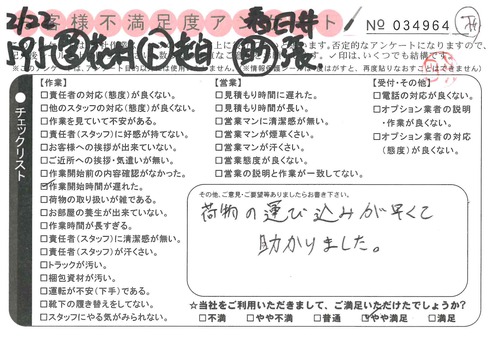 お客様不満足度アンケート
2/22
春日井
No 034964
【作業】
□責任者の対応(態度)が良くない。
□他のスタッフの対応(態度)が良くない。
□作業を見ていて不安がある。
□責任者(スタッフ)に好感が持てない。
□お客様への挨拶が出来ていない。
□ご近所への挨拶・気遣いが無い。
□作業開始前の内容確認がなかった。
□作業開始時間が遅れた。
□荷物の取り扱いが雑である。
□お部屋の養生が出来ていない。
□作業時間が長すぎる。
□責任者(スタッフ)に清潔感が無い。
□責任者(スタッフ)が汗くさい。
□トラックが汚い。
□梱包資材が汚い。
□運転が不安(下手)である。
□靴下の履き替えをしてない。
□スタッフにやる気がみられない。
【営業】
□見積もり時間に遅れた。
□見積もり時間が長い。
□営業マンに清潔感が無い。
□営業マンが煙草くさい。
□営業マンが汗くさい。
□営業態度が良くない。
□営業の説明と作業が一致してない。
【受付・その他】
□電話の対応が良くない。
□オプション業者の説明
・作業が良くない。
□オプション業者の対応
(態度)が良くない。
チェックリスト
その他、ご意見・ご要望等ありましたらお書き下さい。
荷物の運び込みが早くて
助かりました。
☆当社をご利用いただきまして、ご満足いただけたでしょうか?
□不満 □やや不満 □普通 □やや満足 □満足